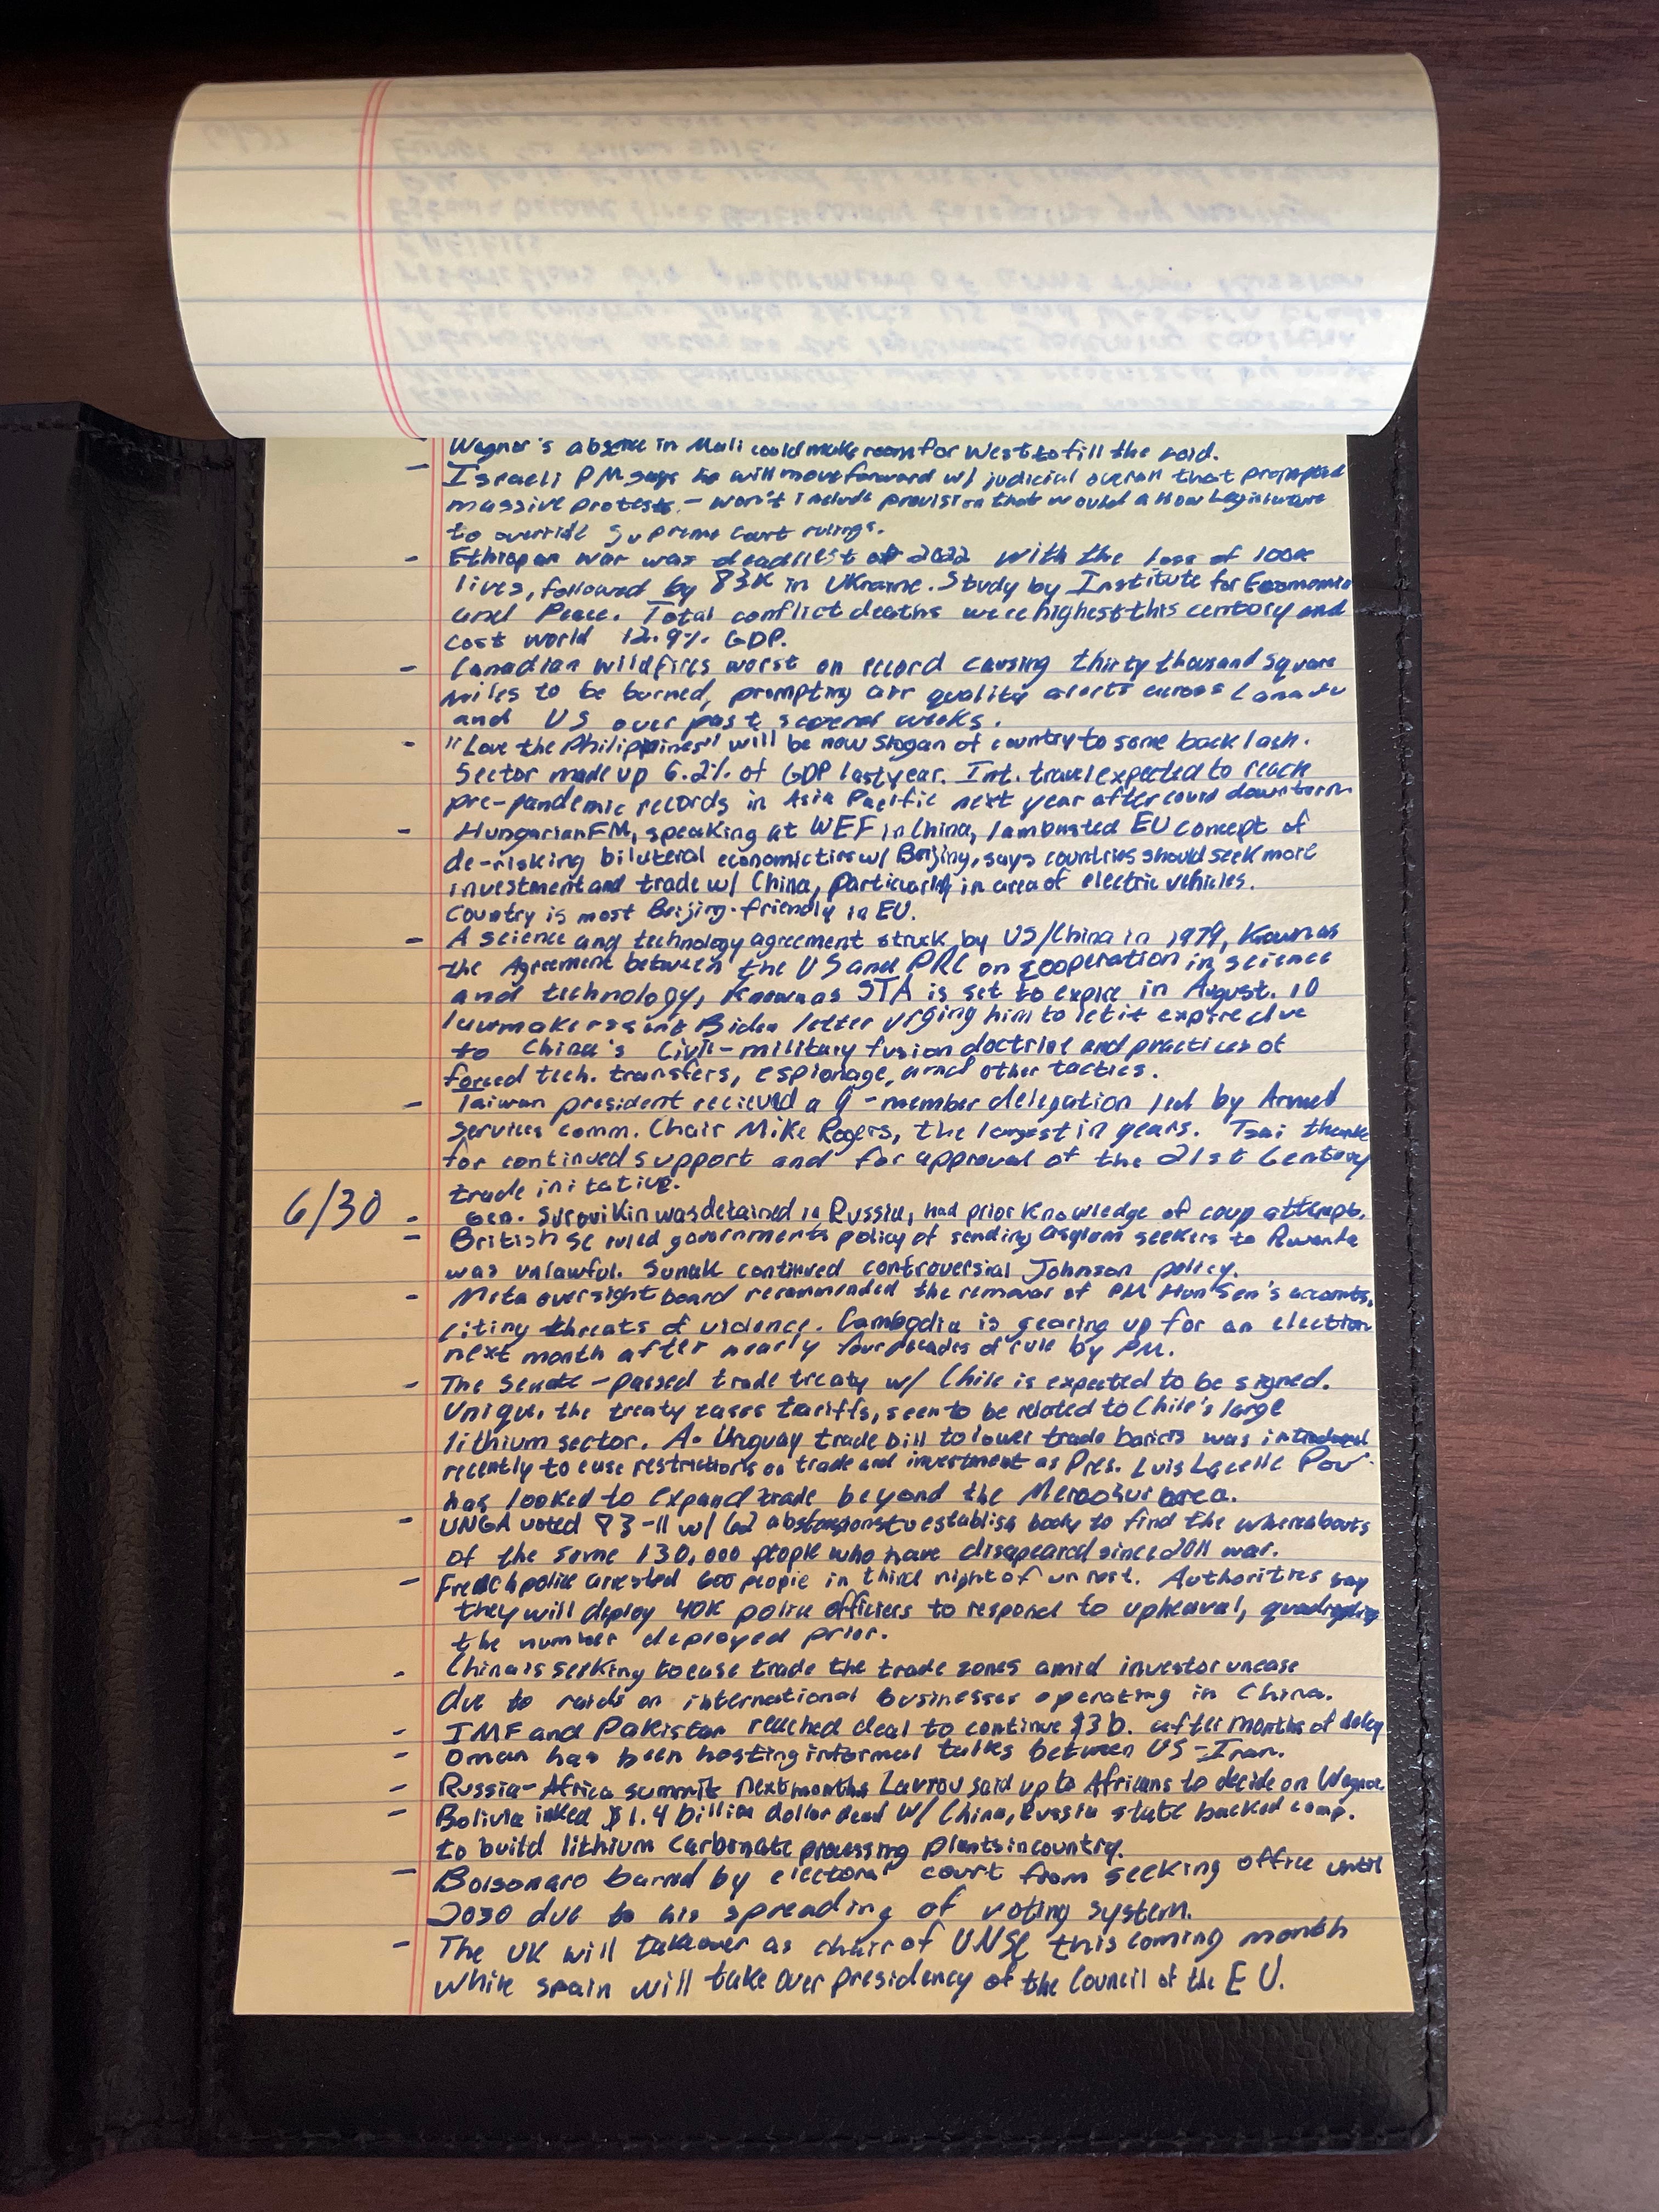 - Wagner's absence in Mali could make room for West to fill the void.
- Israeli PM says he will move forward w/ judicial overall that prompted
massive protests. - won't include provision that would allow Legislature
to override Supreme Court rulings.
- Ethiopan war was deadliest of 2022 with the loss of 100k
lives, followed by 83K in Ukraine. Study by Institute for Economomic
and Peace. Total conflict deaths were highest this century and
cost world 12.9% GDP.
- Canadian wildfires worst on record causing thirty thousand square
miles to be burned, prompting air quality alerts across Canada
and US over past several weeks.
- "Love the Philippines" will be new slogan of country to some backlash.
Sector made up 6.2% of GDP last year. Int. travel expected to reach
pre-pandemic records in Asia Pacific next year after covid downturn
- Hungarian FM, speaking at WEF in China, lambasted EU concept of
de-risking bilateral economic ties w/ Beijing, says countries should seek more
investment and trade w/ China, particularly in area of electric vehicles.
Country is most Beijing-friendly in EU.
- A science and technology agreement struck by US/China in 1979, Known as
the Agreement between the US and PRC on cooperation in science
and technology, Known as STA is set to expire in August. 10
lawmakers sent Biden letter urging him to let it expire due
to China's Civil-military fusion doctrine and practices of
forced tech. transfers, espionage, and other tactics.
- Taiwan president recieved a 9-member delegation led by Armed
Services comm. Chair Mike Rogers, the largest in years. Tsai thanks
for continued support and for approval of the 21st Century
trade initative.
6/30 - Gen. Surovikin was detained in Russia, had prior Knowledge of coup attempt.
- British SC ruled governments policy of sending asylum seekers to Rwanda
was unlawful. Sunak continued controversial Johnson policy.
- Meta oversight board recommended the removal of PM Hun Sen's accounts,
citing threats of violence. Cambodia is gearing up for an election
next month after nearly four decades of rule by PM.
- The Senate-passed trade treaty w/ Chile is expected to be signed.
Unique, the treaty eases tariffs, seen to be related to Chile's large
lithium sector. A Uruguay trade bill to lower trade bariers was
recently to ease restrictions on trade and investment as Pres. Luis Lacelle Pou
has looked to expand trade beyond the Mercosur area.
- UNGA voted 83-11 w/ 62 abstensions to establish body to find the whereabouts
of the some 130,000 people who have disapeared since 2011 war.
- French police arrested 600 people in third night of unrest. Authorities say
they will deploy 40K police officiers to respond to upheaval, quadrupling
the number deployed prior.
- China is seeking to ease trade the trade zones amid investor unease
due to raids on international businesses operating in China.
- IMF and Pakistan reached deal to continue $3b. after months of delay
- Oman has been hosting informal talks between US-Iran.
- Russia-Africa summit next months Lavrov said up to Africans to decide on Wagner.
- Bolivia inked $1.4 billion dollar deal w/ China, Russia state backed comp.
to build lithium carbonate processing plants in country.
- Bolsonaro barred by electoral court from seeking office until
2030 due to his spreading of voting system.
- The UK will takeover as chair of UNSC this coming month
while Spain will take over presidency of the Council of the EU.